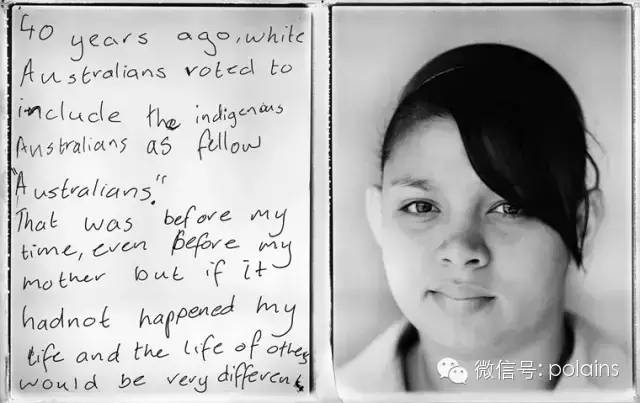 40 years ago, white
Australians voted to
include the indigenous
Australians as fellow
"Australians."
That was before my
time, even before my
mother but if it
hadnot happened my
life and the life of others
would be very different
微信号: polains